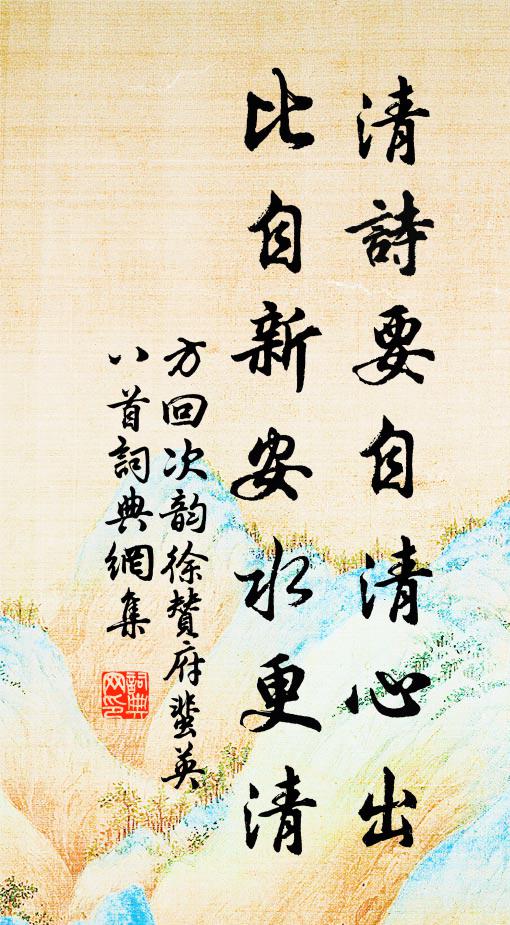 清詩要自清心出
比自新安水更清
方回次韵徐贊府蜚英
八首詞典網集
詞典
網印